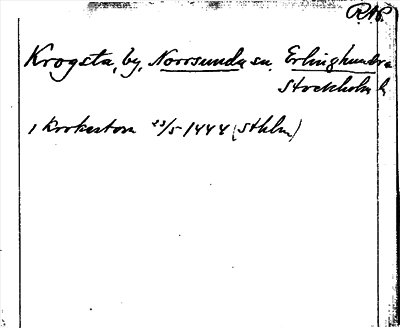 RAp.
Krogsta, by, Norrsunda sn. Erlinghundra
Stockholms l.
i Krokestom 23/5 1444 (Sthlm)